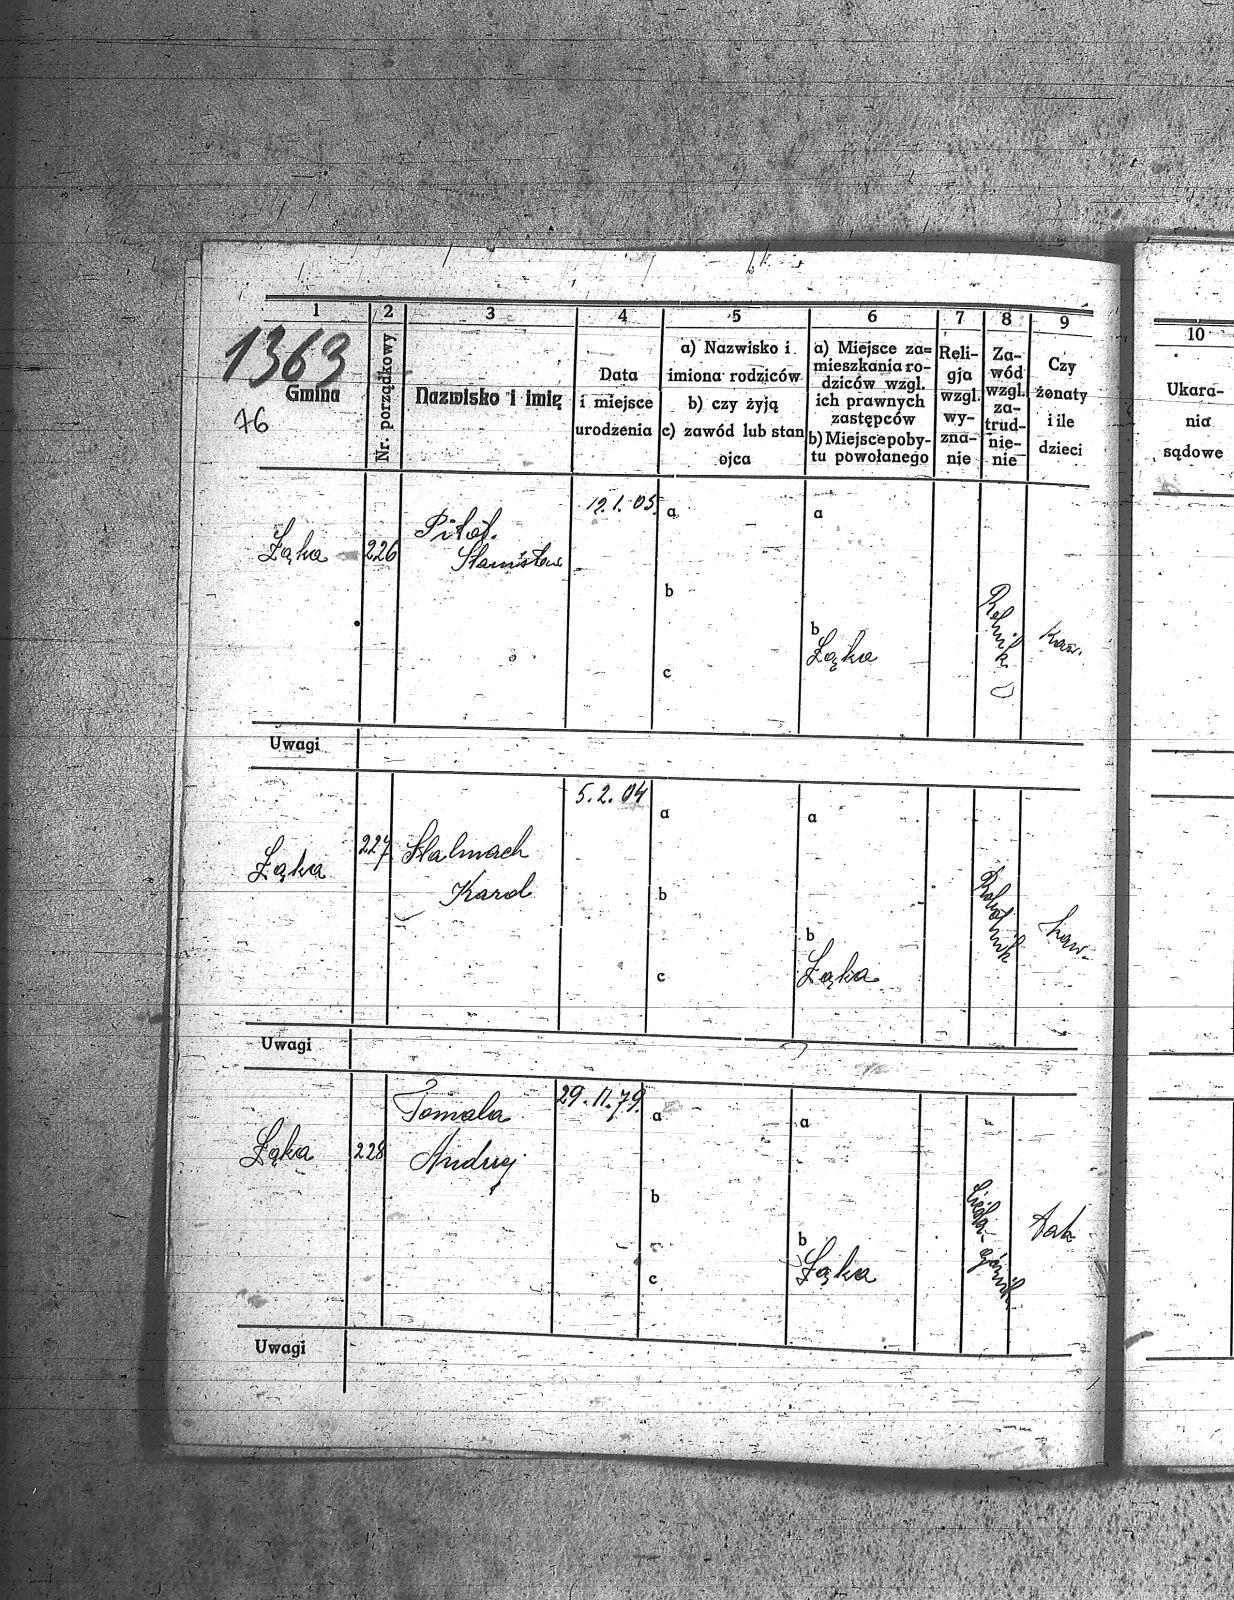 1 2 3 4 5 6 7 8 9
1363
Gmina
76
Nr. porządkowy
Nazwisko i imię
Data
i miejsce
urodzenia
a) Nazwisko i
imiona rodziców
b) czy żyją
c) zawód lub stan
ojca
a) Miejsce za=
mieszkania ro-
dziców wzgl.
ich prawnych
zastępców
b) Miejsce poby-
tu powołanego
Reli-
gja
wzgl.
wy-
zna-
nie
Za-
wód
wzgl.
za-
trud-
nie-
nie
Czy
żonaty
i ile
dzieci
10
Ukara-
nia
sądowe
Łąka 226
Stanisław
a
b
c
a
b
Łąka
Rolnik
Kaw.
Uwagi
Łąka 227 Stalmach
Karol
5.2.04
a
b
c
a
b
Łąka
Robotnik
kaw.
Uwagi
Łąka 228 Tomala
Andrzej
a
b
c
a
b
Łąka
Uwagi